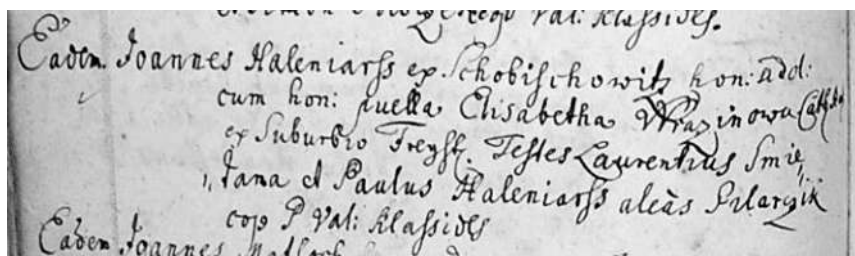 Val: Klassides.
Eadem. Joannes Haleniarss ex Schobischowitz hon: add:
cum hon: puella Elisabetha Wrazinowu Cath:
ex Suburbio Freyst. Testes Laurentius Smie
„tana et Paulus Haleniarss aleas Pilarzik
cop P Val: Klassides
Eadem Joannes